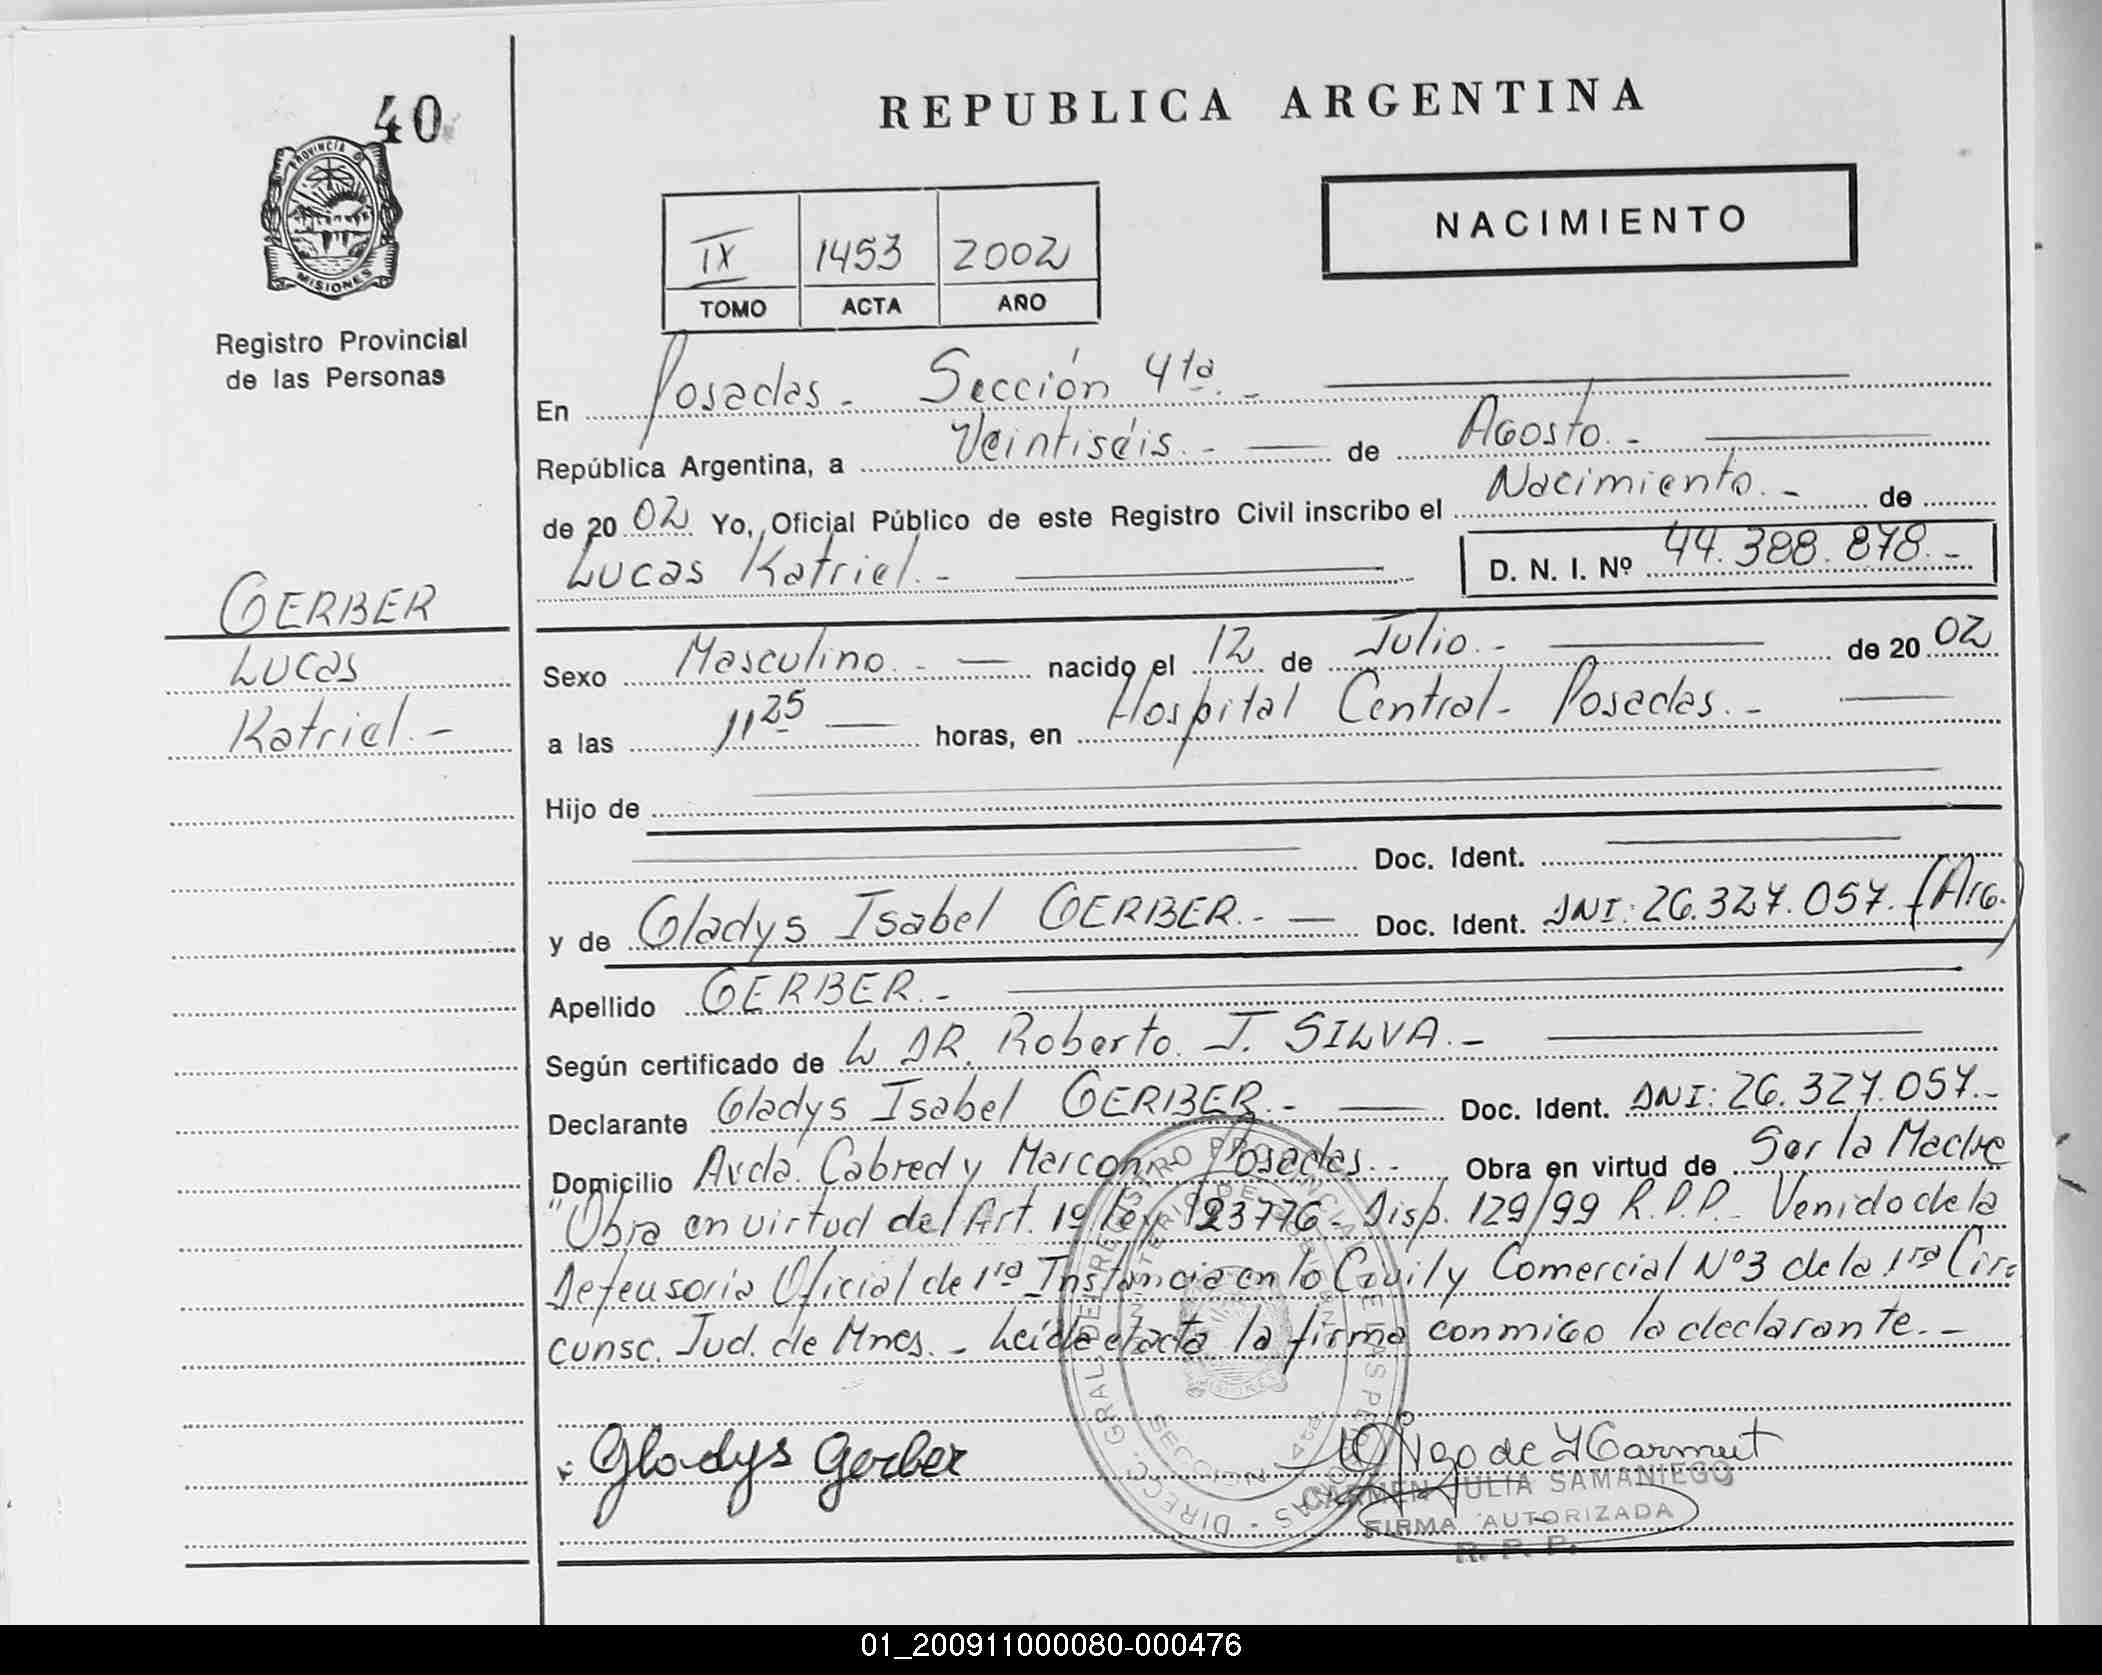 40
PROVINCIA DE
MISIONES
Registro Provincial
de las Personas
GERBER
Lucas
Katriel.-
REPUBLICA ARGENTINA
NACIMIENTO
IX 1453 2002
TOMO ACTA AÑO
En Posadas - Sección 4ta.-
República Argentina, a Veintiséis.- de Agosto.-
de 2002 Yo, Oficial Público de este Registro Civil inscribo el Nacimiento.- de
Lucas Katriel.- D. N. I. Nº 44.388.878.-
Sexo Masculino.- nacido el 12 de Julio.- de 2002
a las 11 25 horas, en Hospital Central - Posadas.-
Hijo de
Doc. Ident.
y de Gladys Isabel GERBER.- Doc. Ident. DNI: 26.327.057. (Arg.)
Apellido GERBER.-
Según certificado de L DR. Roberto J. SILVA.-
Declarante Gladys Isabel GERBER.- Doc. Ident. DNI: 26.327.057.-
Domicilio Avda. Cabred y Marconi - Posadas.- Obra en virtud de Ser la Madre
"Obra en virtud del Art. 1º Ley 23776 - Disp. 129/99 R.P.P.- Venido de la
Defensoría Oficial de 1ra Instancia en lo Civil y Comercial Nº3 de la 1ra Cir-
cunsc. Jud. de Mnes.- Leída el acta la firma conmigo la declarante.-
Gladys Gerber
SECCION 4ta
CARMEN JULIA SAMANIEGO
FIRMA AUTORIZADA
R. P. P.
01_200911000080-000476